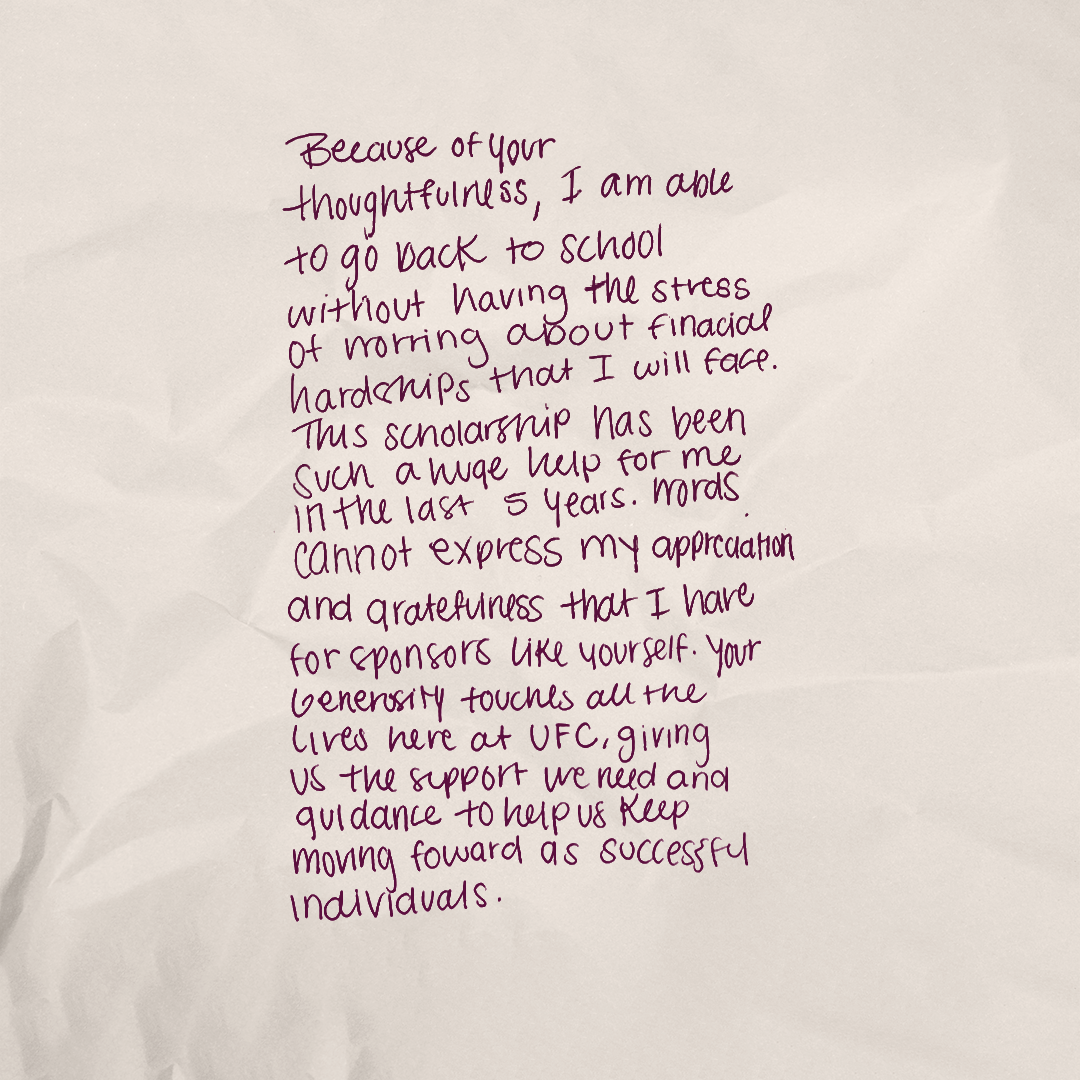 Because of your
thoughtfulness, I am able
to go back to school
without having the stress
of worring about finacial
hardships that I will face.
This scholarship has been
such a huge help for me
in the last 5 years. Words
cannot express my appreciation
and gratefulness that I have
for sponsors like yourself. Your
Generosity touches all the
lives here at UFC, giving
us the support we need and
guidance to help us keep
moving foward as successful
individuals.